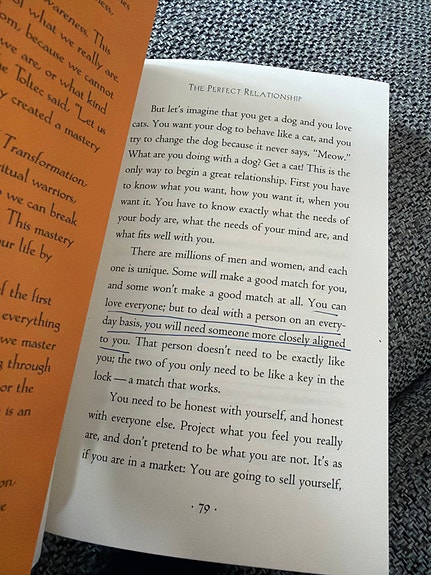 areness. This
of what we really are.
om, because we cannot
we are, or what kind
e Toltec said, "Let us
y created a mastery
Transformation,
itual warriors,
we can break
This mastery
ur life by
f the first
everything
we master
through
or the
is an
on.
THE PERFECT RELATIONSHIP
But let's imagine that you get a dog and you love
cats. You want your dog to behave like a cat, and you
try to change the dog because it never says, "Meow."
What are you doing with a dog? Get a cat! This is the
only way to begin a great relationship. First you have
to know what you want, how you want it, when you
want it. You have to know exactly what the needs of
your body are, what the needs of your mind are, and
what fits well with you.
There are millions of men and women, and each
one is unique. Some will make a good match for you,
and some won't make a good match at all. You can
love everyone; but to deal with a person on an every-
day basis, you will need someone more closely aligned
to you. That person doesn't need to be exactly like
you; the two of you only need to be like a key in the
lock — a match that works.
You need to be honest with yourself, and honest
with everyone else. Project what you feel you really
are, and don't pretend to be what you are not. It's as
if you are in a market: You are going to sell yourself,
· 79 ·